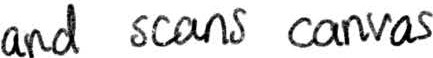 and scans canvas